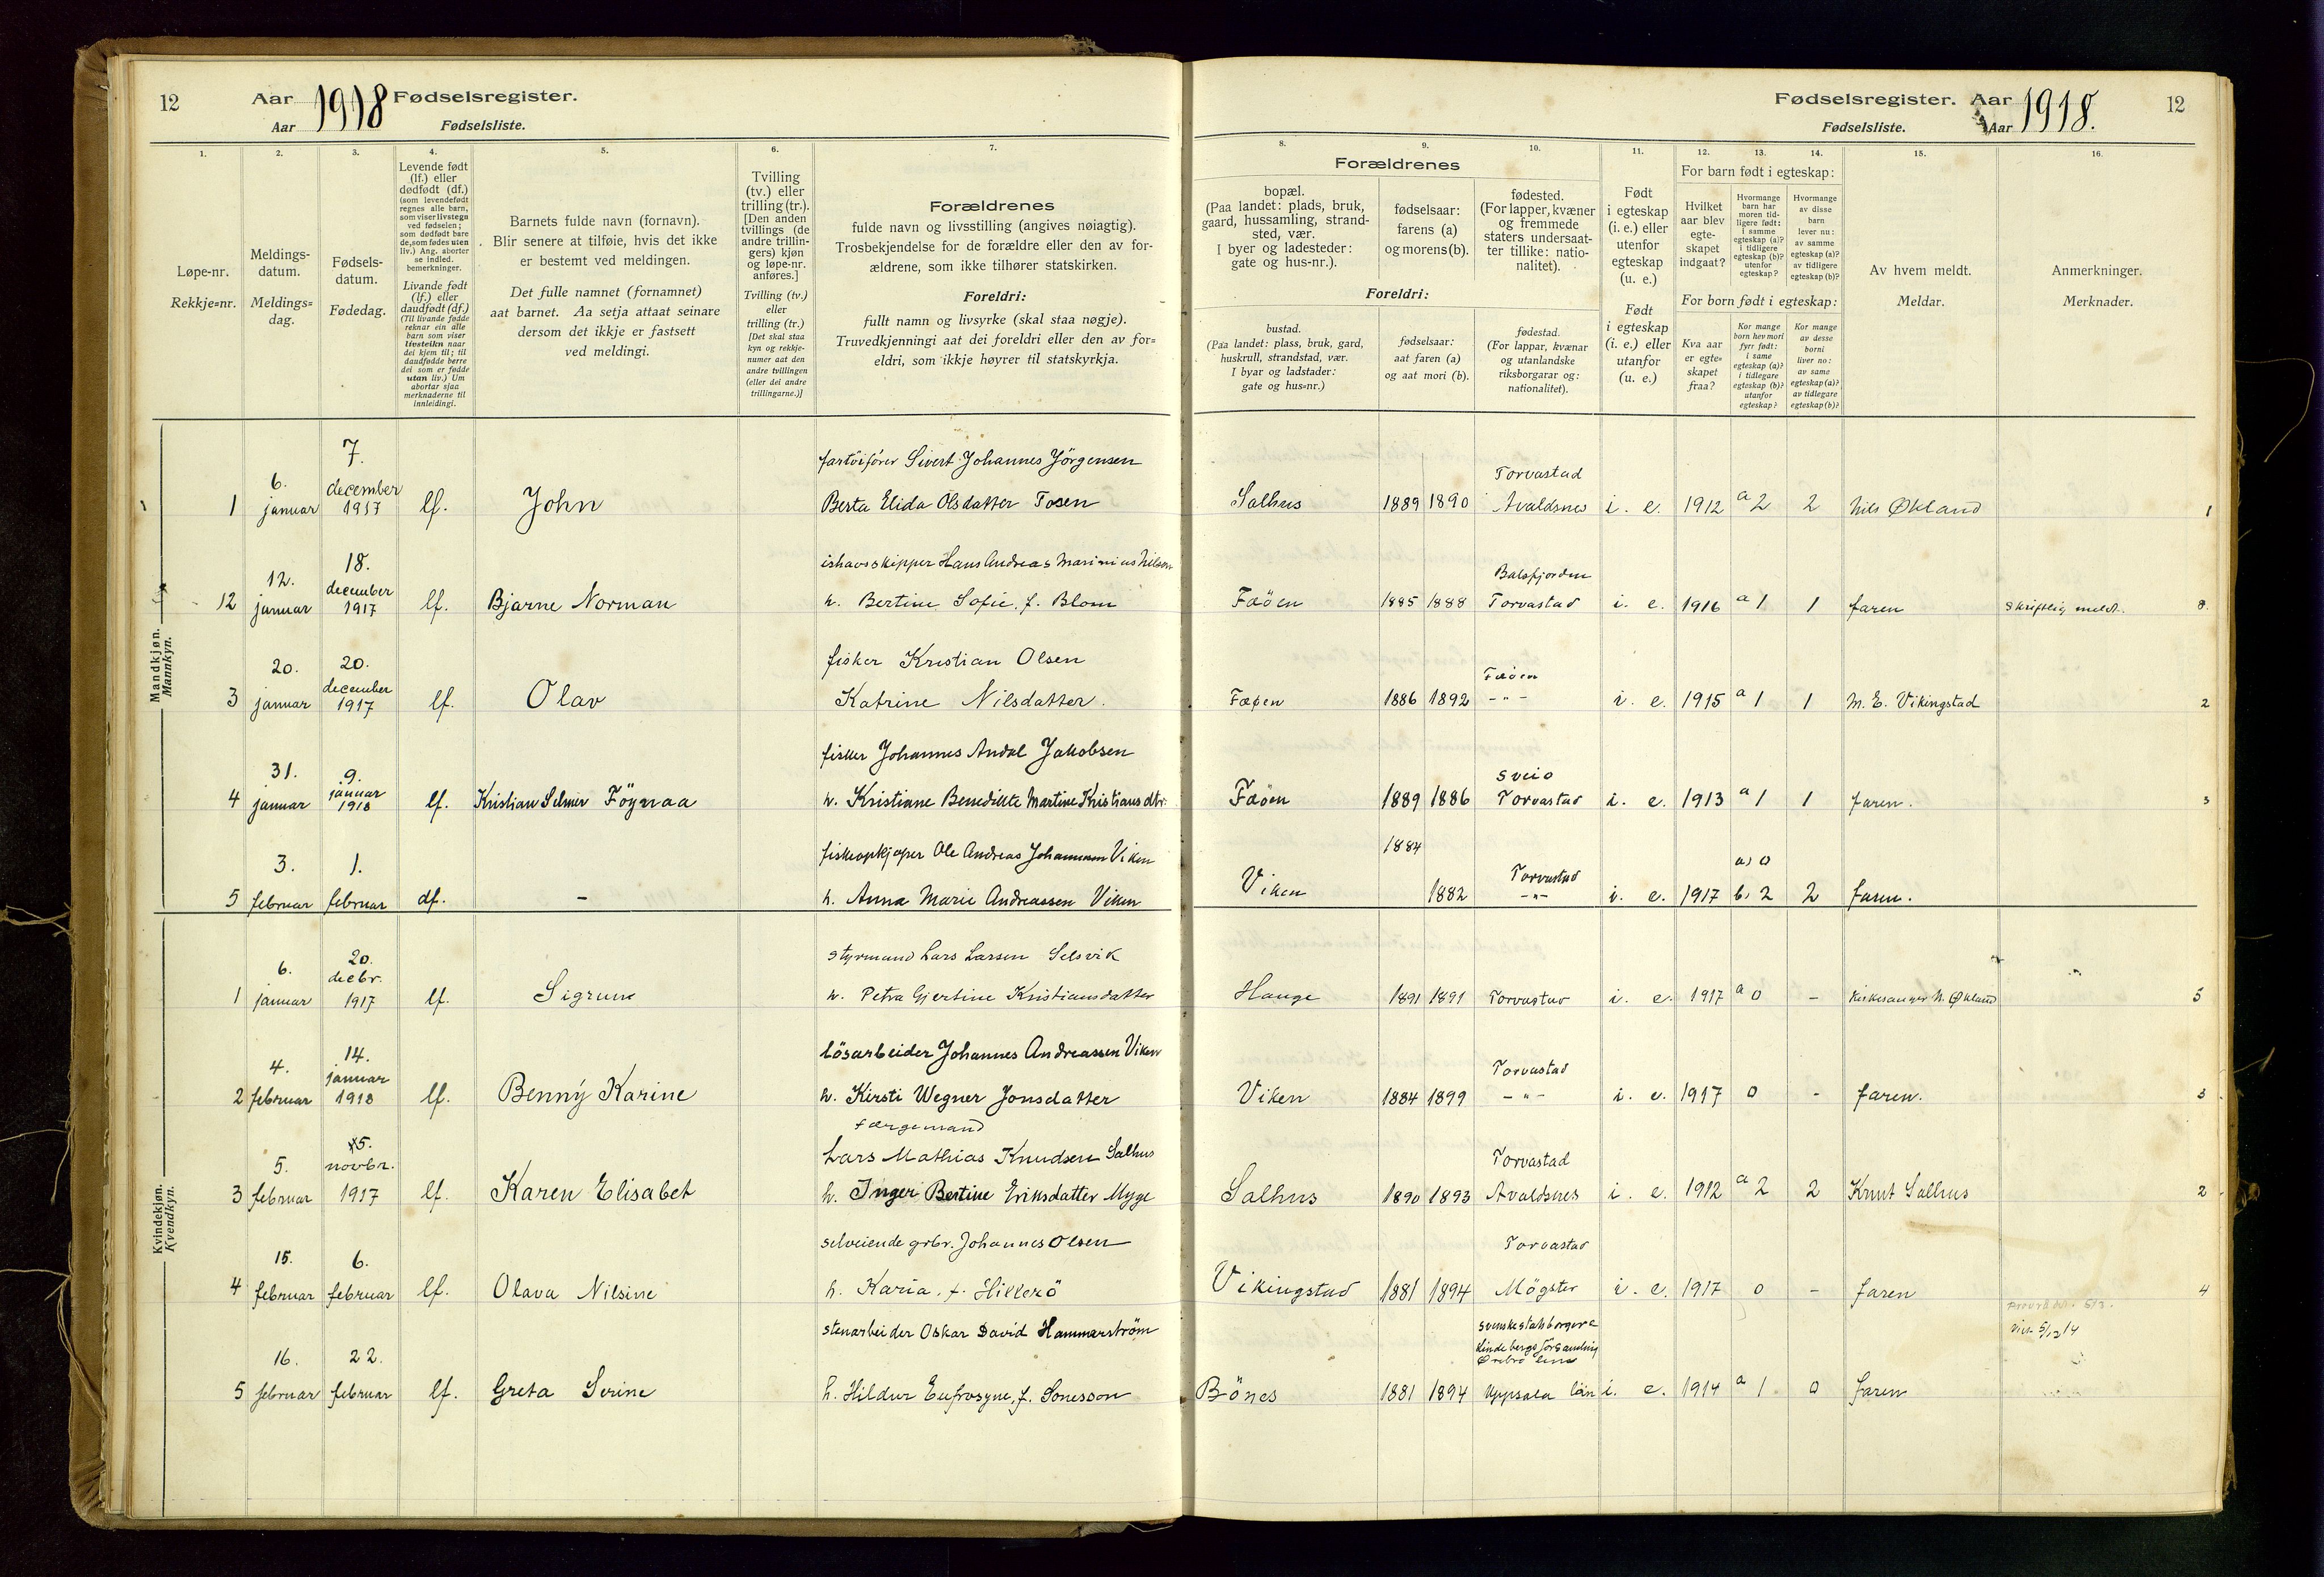 12
Aar 1918 Fødselsregister.
Aar
Fødselsliste.
Fødselsregister. Aar 1918.
12
Fødselsliste.
Aar
1.
2.
3.
4.
5.
6.
7.
Løpe-nr.
Rekkje=nr.
Meldings-
datum.
Meldings=
dag.
Fødsels-
datum.
Fødedag.
Levende født
(lf.) eller
dødfødt (df.)
(som levendefødt
regnes alle barn,
som viser livstegn
ved fødselen;
som dødfødt bare
de, som fødes uten
liv.) Ang. aborter
se indled.
bemerkninger.
Livande født
(lf.) eller
daudfødt (df.)
(Til livande fødde
reknar ein alle
barn som viser
livsteikn naar
dei kjem til; til
daudfødde berre
dei som er fødde
utan liv.) Um
abortar sjaa
merknaderne til
innleidingi.
Barnets fulde navn (fornavn).
Blir senere at tilføie, hvis det ikke
er bestemt ved meldingen.
Det fulle namnet (fornamnet)
aat barnet. Aa setja attaat seinare
dersom det ikkje er fastsett
ved meldingi.
Tvilling
(tv.) eller
trilling (tr.).
[Den anden
tvillings (de
andre trillin-
gers) kjøn
og løpe-nr.
anføres.]
Tvilling (tv.)
eller
trilling (tr.)
[Det skal staa
kyn og rekkje-
numer aat den
andre tvillingen
(eller dei andre
trillingarne.)]
Forældrenes
fulde navn og livsstilling (angives nøiagtig).
Trosbekjendelse for de forældre eller den av for-
ældrene, som ikke tilhører statskirken.
Foreldri:
fullt namn og livsyrke (skal staa nøgje).
Truvedkjenningi aat dei foreldri eller den av for=
eldri, som ikkje høyrer til statskyrkja.
8.
9.
10.
11.
12.
13.
14.
15.
16.
Forældrenes
bopæl.
(Paa landet: plads, bruk,
gaard, hussamling, strand-
sted, vær.
I byer og ladesteder:
gate og hus-nr.).
fødselsaar:
farens (a)
og morens (b).
fødested.
(For lapper, kvæner
og fremmede
staters undersaat-
ter tillike: natio-
nalitet).
Foreldri:
bustad.
(Paa landet: plass, bruk, gard,
huskrull, strandstad, vær.
I byar og ladstader:
gate og hus=nr.)
fødselsaar:
aat faren (a)
og aat mori (b).
fødestad.
(For lappar, kvænar
og utanlandske
riksborgarar og:
nationalitet).
Født
i egteskap
(i. e.) eller
utenfor
egteskap
(u. e.)
Født
i egteskap
(i. e.) eller
utanfor
(u. e.)
For barn født i egteskap:
Hvilket
aar blev
egte-
skapet
indgaat?
Hvormange
barn har
moren tid-
ligere født:
i samme
egteskap (a)?
i tidligere
egteskap (b)?
utenfor
egteskap?
Hvormange
av disse
barn
lever nu:
av samme
egteskap (a)?
av tidligere
egteskap (b)?
For born født i egteskap:
Kva aar
er egte=
skapet
fraa?
Kor mange
born hev mori
fyrr født:
i same
egteskap (a)?
i tidlegare
egteskap (b)?
utanfor
egteskap?
Kor mange
av desse
borni
liver no:
av same
egteskap (a)?
av tidlegare
egteskap (b)?
Av hvem meldt.
Meldar.
Anmerkninger.
Merknader.
Mandkjøn.
Mannkyn.
7.
fartöifören Sivert Johannes Jörgensen Torvastad
1 6. januar december 1917 lf. John Berta Elida Olsdatter Tosen Salhus 1889 1890 Avaldsnes i. e. 1912 a 2 2 Nils Økland 1
18. ishavsskipper Hans Andreas Marinius Nilsen Balsfjorden
12 12. januar december 1917 lf. Bjarne Norman h. Bertine Sofie, f. Blom Fæöen 1885 1888 Torvastad i. e. 1916 a 1 1 faren skriftlig meldt. 8
20. fisker Kristian Olsen Fæöen
3 20. januar december 1917 lf. Olav Katrine Nilsdatter. Fæøen 1886 1892 -"- i. e. 1915 a 1 1 M. E. Vikingstad 2
fisker Johannes Andal Jakobsen Sveio
4 31. januar 9. januar 1918 lf. Kristian Selmer Föynaa h. Kristiane Benedikte Martine Kristiansdtr. Fæöen 1889 1886 Torvastad i. e. 1913 a 1 1 faren. 3
fiskeopkjøper Ole Andreas Johannesen Viken 1884 Torvastad a) 0
5 3. februar 1. februar df. - h. Anna Marie Andreassen Viken Viken 1882 -"- i. e. 1917 b, 2 2 faren.
Kvindekjøn.
Kvendkyn.
20. styrmand Lars Larsen Selsvik
1 6. januar decbr. 1917 lf. Sigrune h. Petra Gjertine Kristiansdatter Hauge 1891 1891 Torvastad i. e. 1917 a 0 - kirkesanger N. Økland 5
14. lösarbeider Johannes Andreassen Viken Torvastad
2 4. februar januar 1918 lf. Benny Karine h. Kirsti Wegner Jonsdatter Viken 1884 1899 -"- i. e. 1917 0 - faren. 3
færgemand
5. Lars Mathias Knudsen Salhus Torvastad
3 5. februar novbr. 1917 lf. Karen Elisabet h. Inger Bertine Eriksdatter Myge Salhus 1890 1893 Avaldsnes i. e. 1912 a 2 2 Knut Salhus 2
selveiende grbr. Johannes Olsen Torvastad
4 15. februar 6. februar lf. Olava Nilsine h. Karia, f. Hillerö Vikingstad 1881 1894 Mögster i. e. 1917 0 - faren 4
stenarbeider Oskar David Hammerström svenske statsborgere
Lindebergs församling
Örebro län
5 16. februar 22. februar lf. Greta Serine h. Hildur Eufrosyne, f. Sonesson Bönes 1881 1894 Uppsala län i. e. 1914 a 1 0 faren